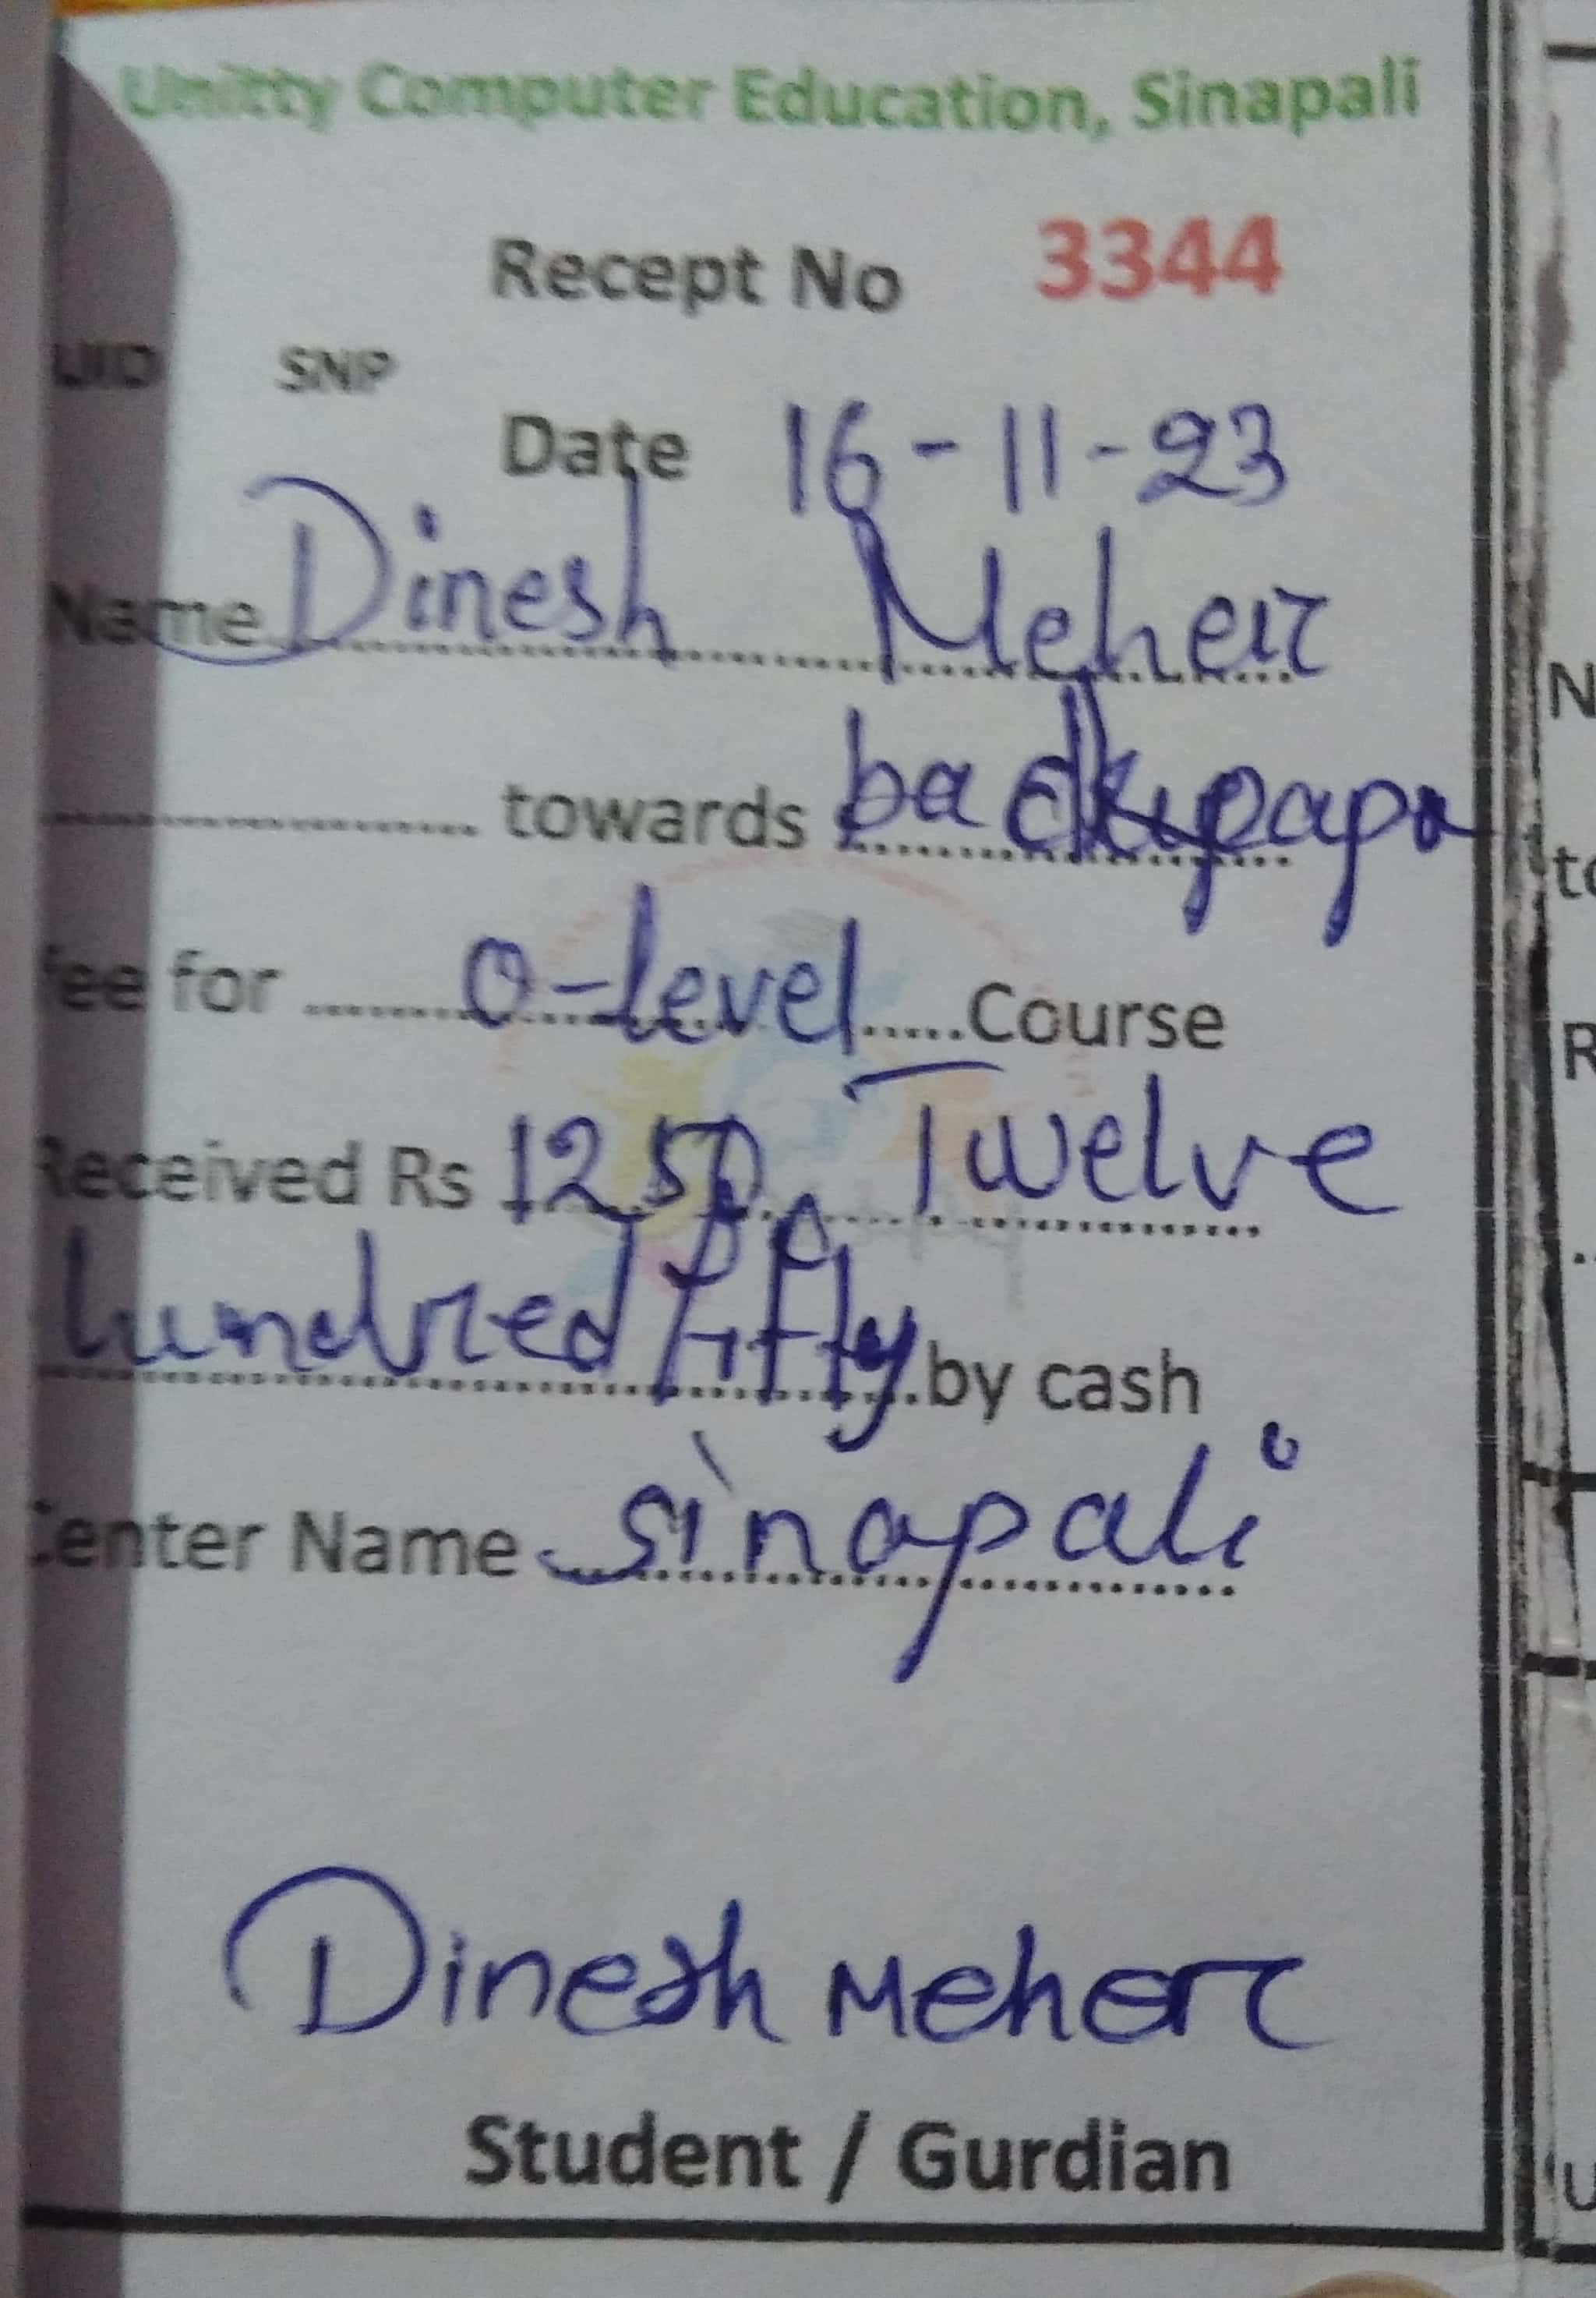 Unitty Computer Education, Sinapali
Recept No 3344
UID SNP
Date 16-11-23
Name Dinesh Meher
towards back paper
fee for O-level Course
Received Rs 1250 Twelve
hundred fifty by cash
Center Name Sinapali
Dinesh Meher
Student / Gurdian